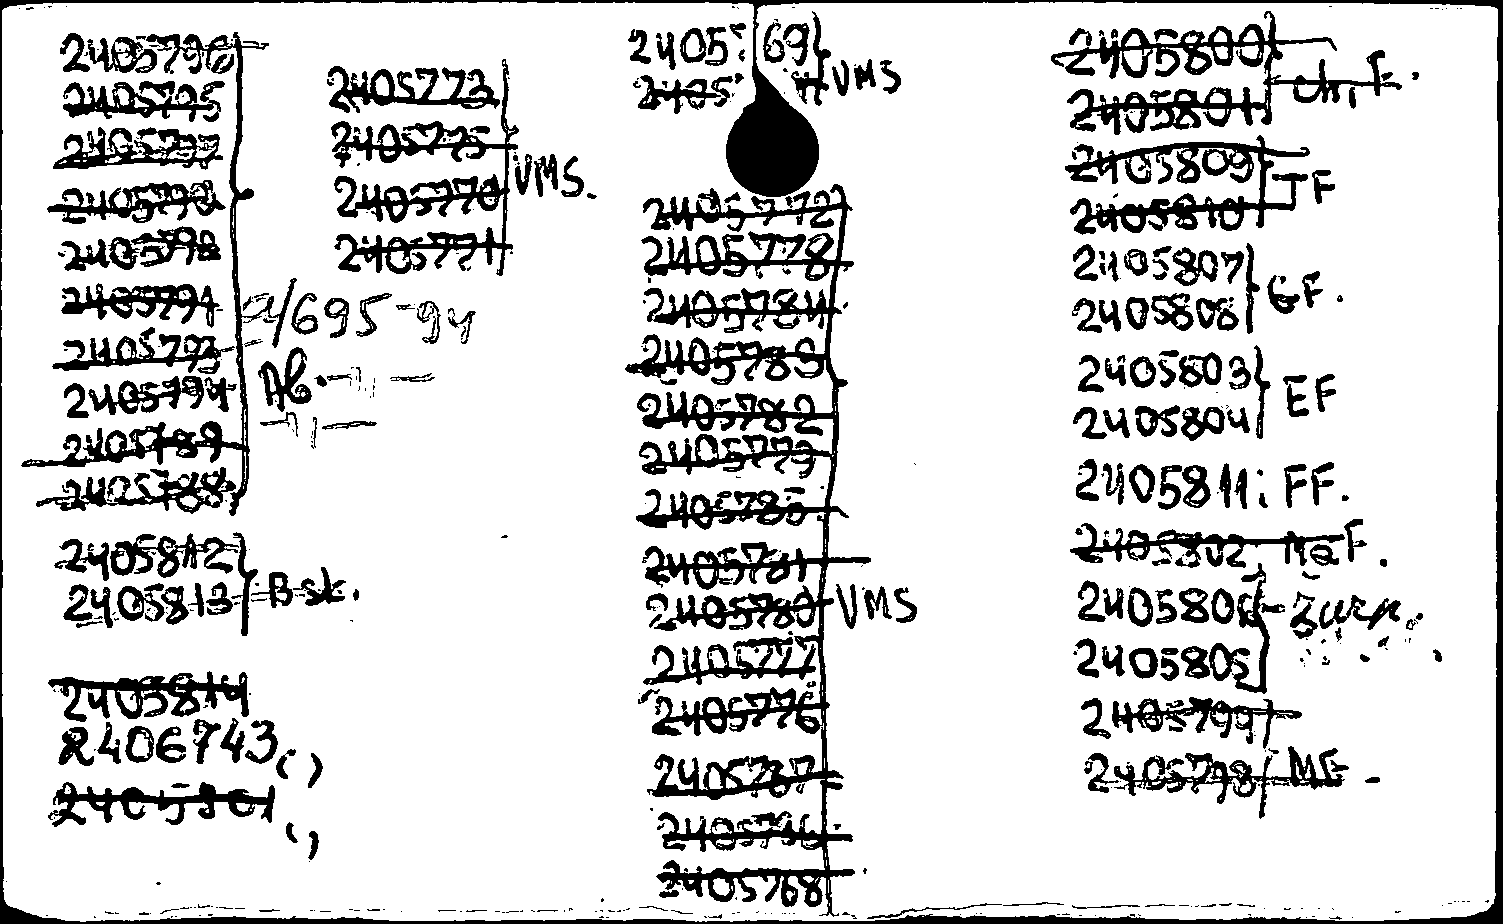 2405796
2405795
2405797
2405790
2405792
2405791
2405793
2405794
2405789
2405788
a/695-94
Ab.
2405812
2405813 Bsk.
2405814
2406743 ( )
2405801
2405773
2405775
2405770 VMS.
2405771
69 VMS
2405772
2405778
2405784
2405783
2405782
2405779
2405785
2405781
2405780 VMS
2405777
2405776
2405787
2405768
2405800
2405801
2405809 JF
2405810
2405807 GF.
2405808
2405803 EF
2405804
2405811: FF.
2405802
2405806
2405805
2405799
2405798 MF -